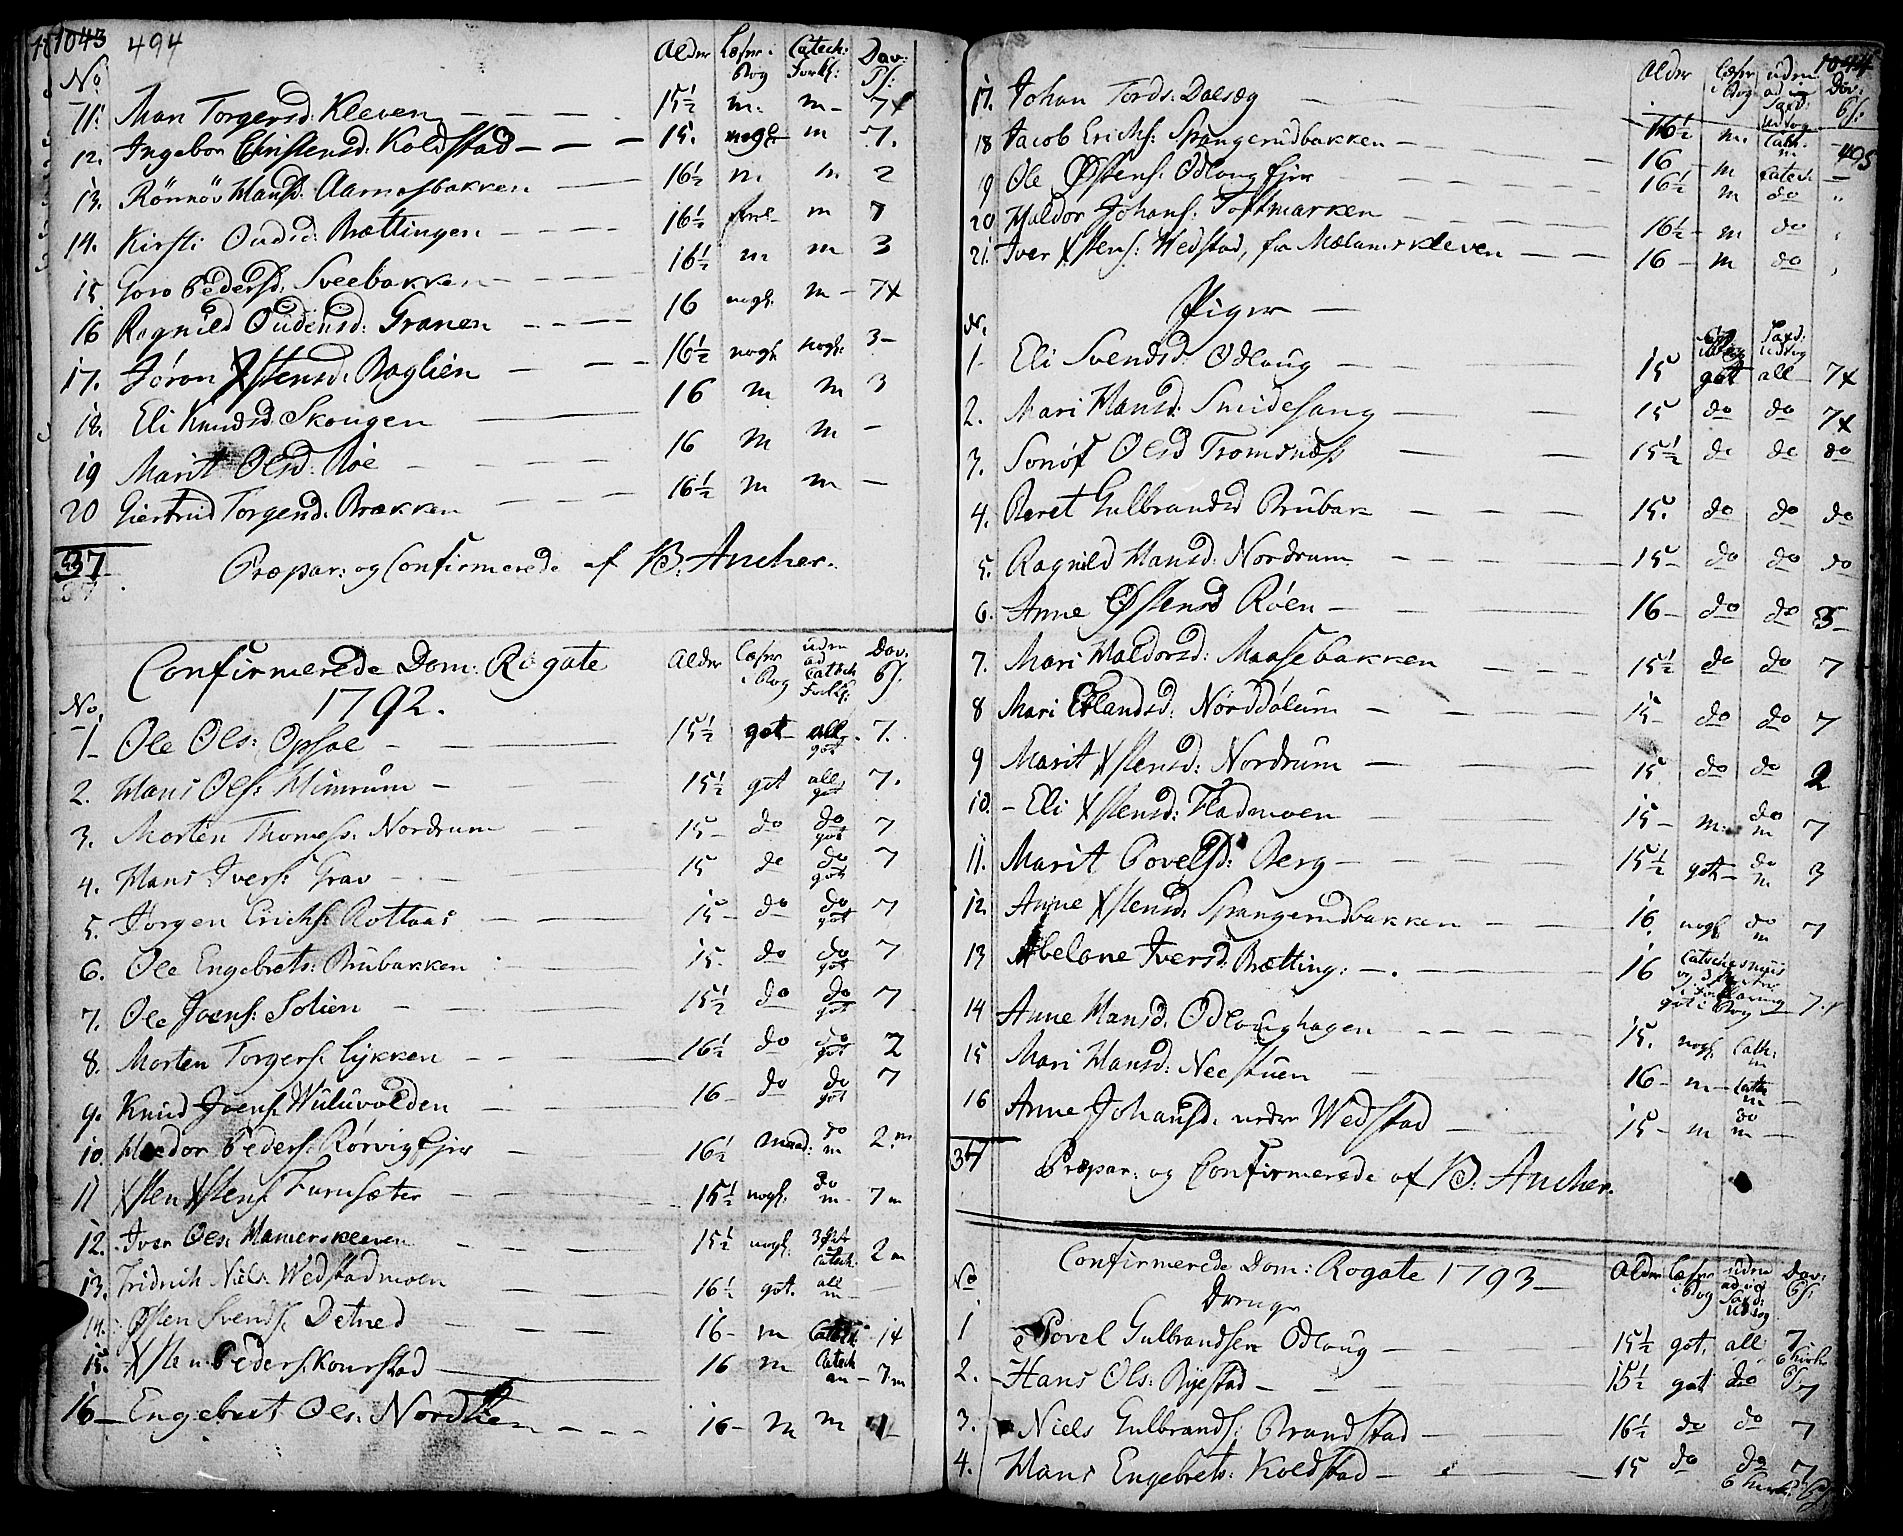 1043 494
No Alder Læser i Bog Catech: Forkl: Dav: Ps:
11. Mari Torgersd: Kleven 15½ m. m 7+
12. Ingebor Christensd: Koldstad 15. nogl. m 7.
13. Rönnöv Hansd: Aarnesbakken 16½ m m 2
14. Kirsti Oudsd: Brættingen 16½ m 7
15 Goro Pedersd: Sveebakken 16½ m m 3
16 Ragnild Oudensd: Granen 16 nogl. m 7+
17. Jöron Xstensd: Baglien 16½ nogl. nogl. 3
18. Eli Knudsd: Skougen 16 m m 3
19 Marit Olsd: Moe 16 m m —
20 Giertrud Torgersd: Brækken 16½ m m —
37 Præpar: og Confirmerede af B: Ancher.
Confirmerede Dom: Rogate 1792.
No. Alder Læser i Bog uden ad Catech Forkl: Dav: Ps:
1 Ole Ols: Opsal 15½ got all got 7.
2. Hans Ols: Himrum 15½ got all got 7.
3. Morten Thomess: Nordrum 15 do do got 7
4. Hans Ivers: Grav 15 do do got 7
5. Jörgen Erichs: Rottaas 15 do do got 7
6. Ole Engebrets: Brubakken 15 do do got 7
7. Ole Joens: Solien 15½ do do got 7
8. Morten Torgers: Lykken 16½ do do got 2
9. Knud Joens: Wuluvolden 16 do do got 7
10. Haldor Peders: Rörvig Ejer 16½ maad: do m 2 m
11 Xsten Xstens: Furusæter 15½ nogl. do m 7 m
12. Iver Ols: Hamerskleven 15½ nogl. Catech. 2 m
13. Fridrich Niels: Wedstadmoen 16½ got. all m —
14. Östen Svends: Detned 16 m Catech. 14
15. Xsten Peders: Konrstad 16 m Catech 7 m
16 Engebret Ols: Nordlien 16 m m 1
1044 495
Alder Læser i Bog uden ad og Saxd: Udtog Dav: Ps:
17. Johan Tords: Dalsæg 16½ m. Cath. m —
18 Jacob Erichs: Spangerudbakken 16 m Catech —
19 Ole Östens: Odloug Ejer 16½ m do
20 Haldor Johans: Toftmarken 16½ m do
21. Iver Xstens: Wedstad, fra Mælumskleven 16 m do
Piger
Nr. Saxd: Udtog
1 Eli Svendsd: Odloug 15 got all 7+
2. Mari Hansd: Smidesang 15 do do 7+
3. Sonöf Olsd Tromsnæs 15½ do do do
4. Beret Gulbrandsd Brubak 15. do do do
5. Ragnild Hansd: Nordrum 15 do do do
6. Anne Östensd Röen 16 do do 3
7. Mari Haldorsd: Maasebakken 15½ do do 7
8 Mari Erlandsd: Norddölum 15 do do 7
9 Marit Xstensd: Nordrum 15 do do 2
10. Eli Xstensd: Fladmoen 15 m. do m 7
11. Marit Povelsd: Berg 15½ got do m 3
12. Anne Xstensd: Spangerudbakken 16. nogl. do m 7
13 Abelone Iversd: Brætting: 16 Catechesmus og 3 Parter i Forklaring got i Bog 7.
14 Anne Hansd: Odloughagen 15. nogl. Cath: m
15 Mari Hansd: Neestuen 16 m Cath m —
16 Anne Johansd: nedre Wedstad 15 m do m —
37 Præpar: og Confirmerede af B: Ancher.
Confirmerede Dom: Rogate 1793
No Drenge Alder Læser i Bog uden ad og Saxd: Udtog Dav: Ps:
1 Povel Gulbrandsen Odloug 15½ got. all 7
2. Hans Ols: Byestad 15½ got do 7
3. Niels Gulbrands: Brandstad 16½ do do 7
4. Hans Engebrets: Koldstad 15 do do 7